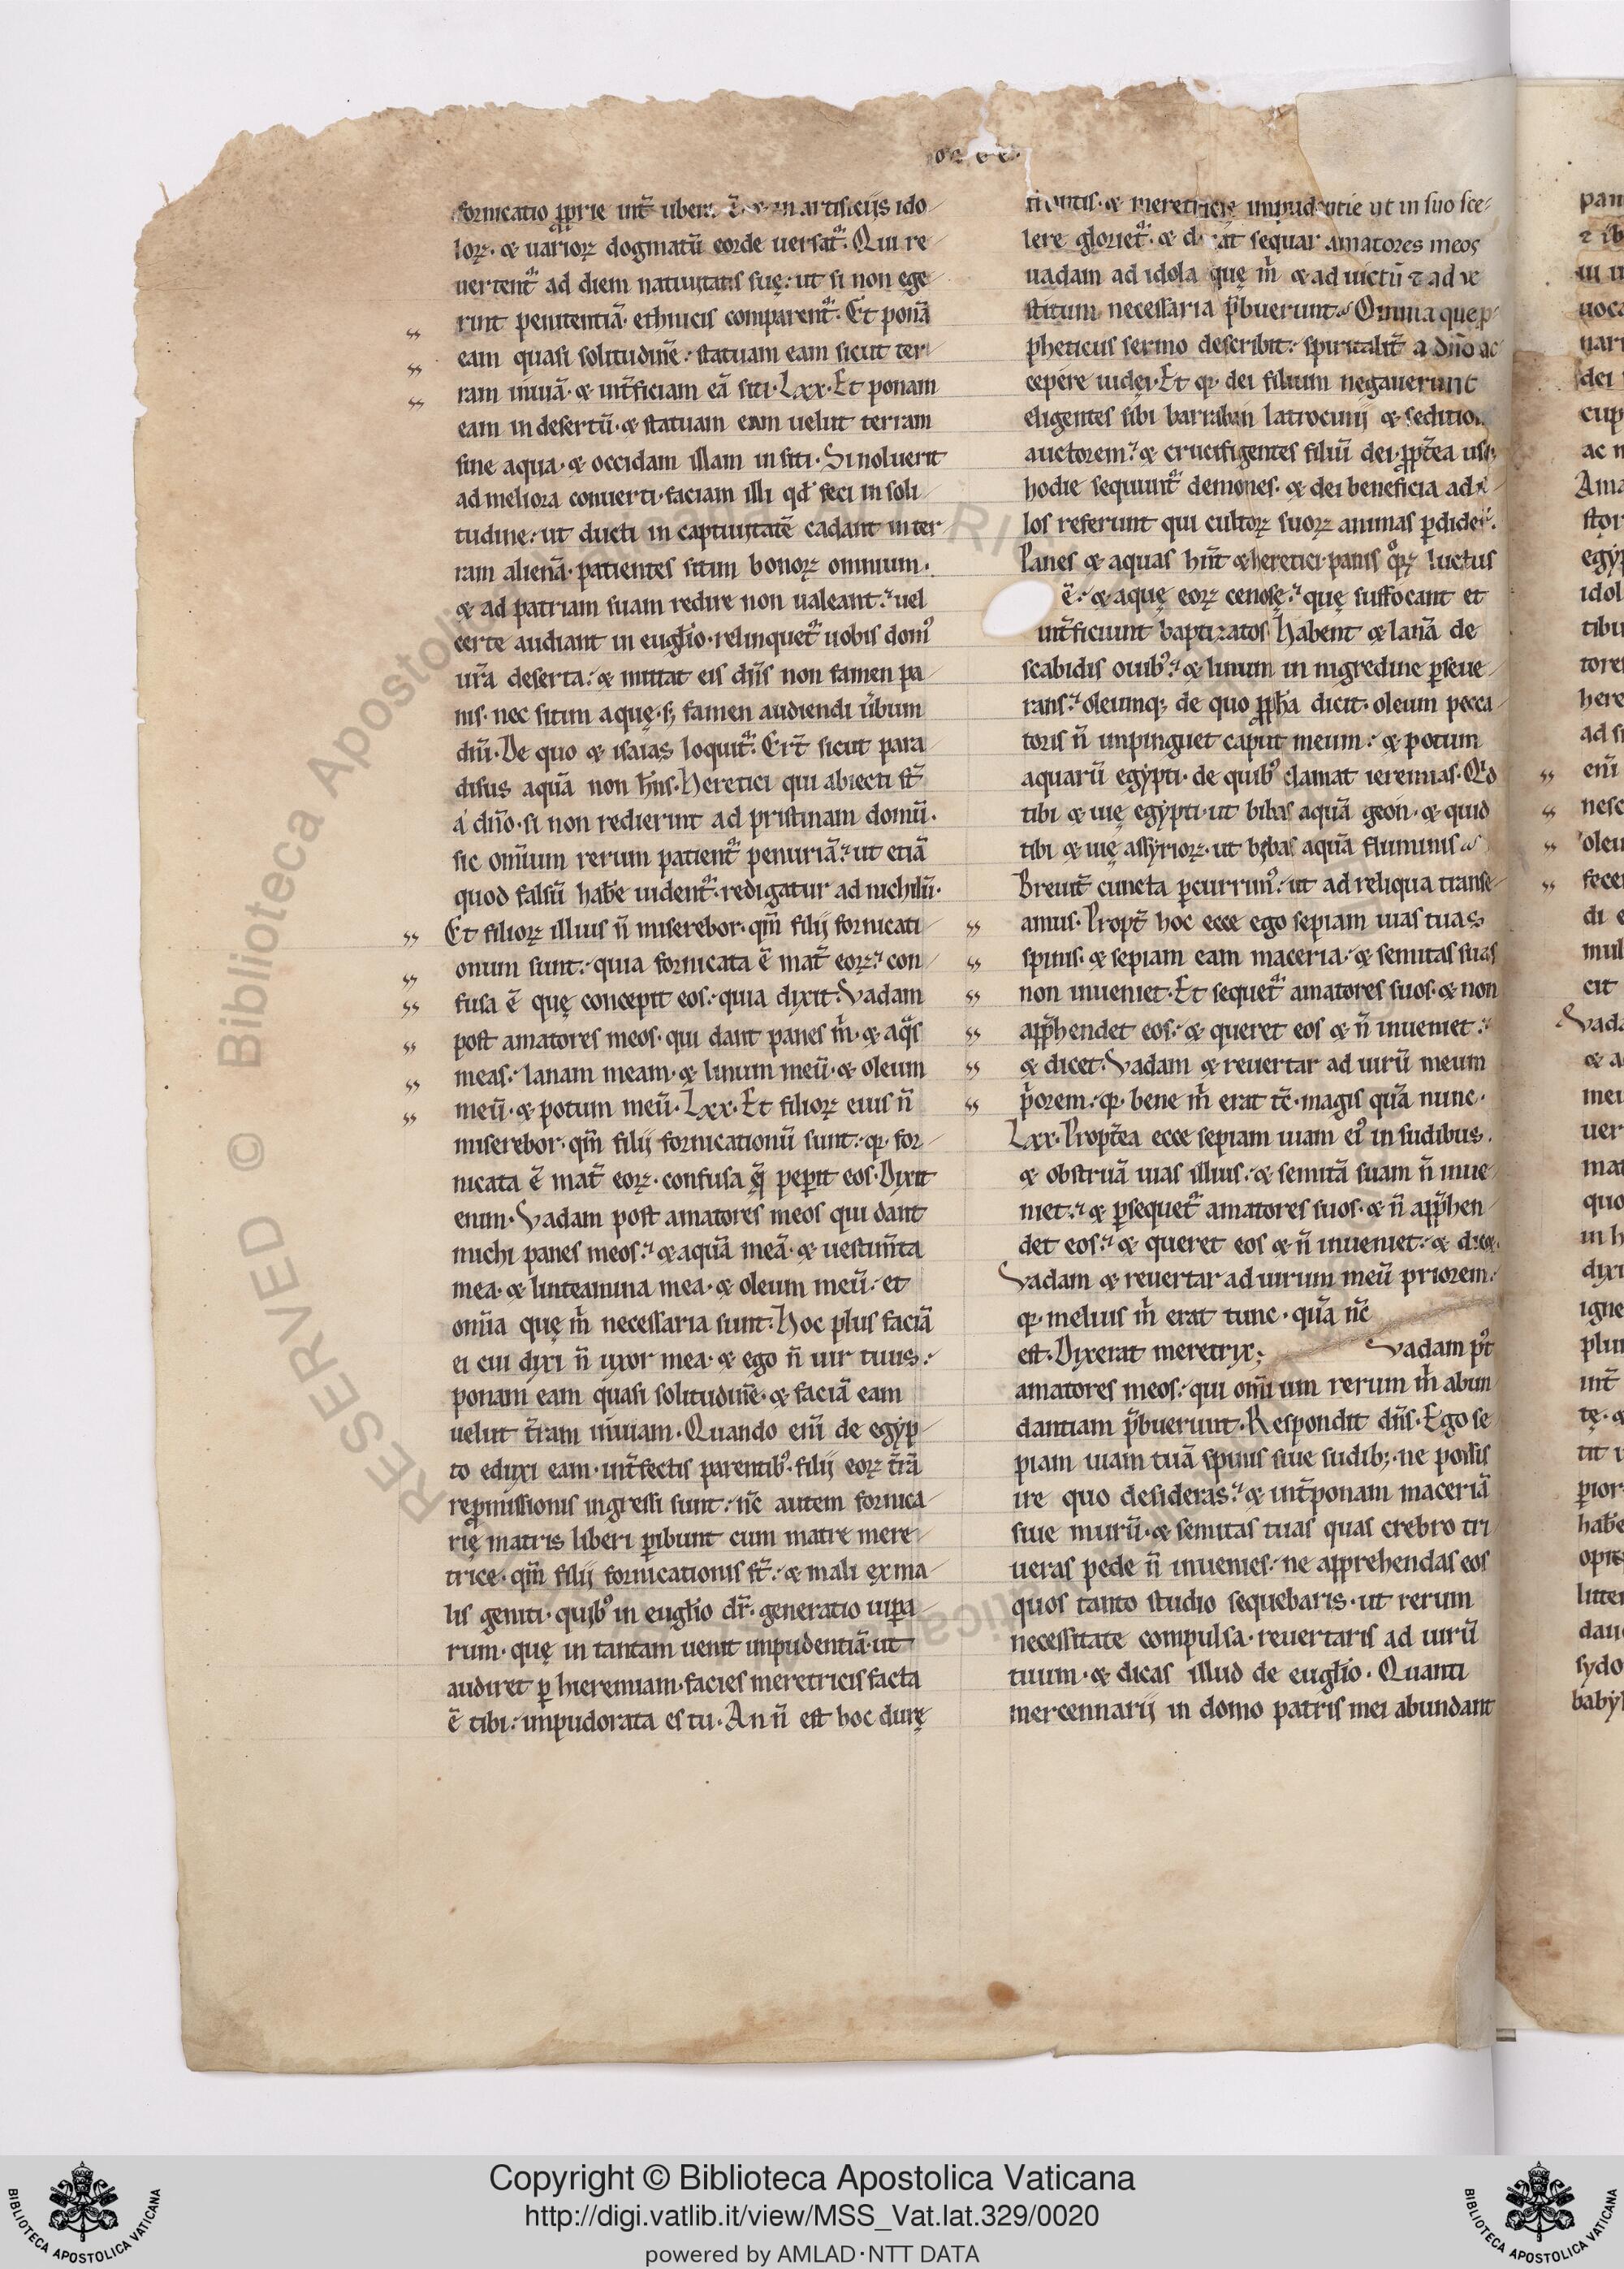 osee
fornicatio ꝓprie int̄ ubera ē ⁊ in artificijs ido
loꝝ. & uarioꝝ dogmatū corde uersat᷑. Qui re
uertent᷑ ad diem natiuitatis suę. ut si non ege
rint penitentiā. ethnicis comparent᷑. Et ponā
eam quasi solitudinē. statuam eam sicut ter
ram inuiā. & int̄ficiam eā siti. Lxx. Et ponam
eam in desertū. & statuam eam uelut terram
sine aqua. & occidam illam in siti. Si noluerit
ad meliora conuerti. faciam illi qđ feci in soli
tudine. ut ducti in captiuitatē cadant in ter
ram alienā. patientes sitim bonoꝝ omnium.
& ad patriam suam redire non ualeant. uel
certe audiant in euglio. relinquet᷑ uobis dom᷒
ur̄a deserta. & mittat eis dn̄s non famen pa
nis. nec sitim aquę. sꝫ famen audiendi ūbum
dn̄i. De quo & isaias loquit᷑. Erit sicut para
disus aquā non hn̄s. Heretici qui abiecti st̄
á dn̄o. si non redierint ad pristinam domū.
sic om̄ium rerum patient᷑ penuriā. ut etiā
quod falsū habe uident᷑. redigatur ad nichilū.
Et filioꝝ illius n̄ miserebor. qm̄ filij fornicati
onum sunt. quia fornicata ē mat̄ eoꝝ. con
fusa ē quę concepit eos. quia dixit. Vadam
post amatores meos. qui dant panes m̄. & aq̄s
meas. lanam meam. & linum meū. & oleum
meū. & potum meū. Lxx. Et filioꝝ eius n̄
miserebor. qm̄ filij fornicationū sunt. qꝛ for
nicata ē mat̄ eoꝝ. confusa q̄ peꝑit eos. Dixit
enim. Vadam post amatores meos qui dant
michi panes meos. & aquā meā. & uestim̄ta
mea. & linteamina mea. & oleum meū. et
om̄ia quę m̄ necessaria sunt. Hoc plus faciā
ei cui dixi n̄ uxor mea. & ego n̄ uir tuus.
ponam eam quasi solitudinē. & faciā eam
uelut t̄ram inuiam. Quando eni̅ de egyp
to eduxi eam. int̄fectis parentib᷒. filij eoꝝ t̄rā
reꝓmissionis ingressi sunt. nc̄ autem fornica
rię matris liberi ꝑibunt cum matre mere
trice. qm̄ filij fornicationis st̄. & mali ex ma
lis geniti. quib᷒ in euglio dr̄. generatio uiꝑa
rum. quę in tantam uenit inpudentiā. ut
audiret ꝑ hieremiam. facies meretricis facta
ē tibi. inpudorata es tu. An n̄ est hoc durę
frontis. & meretricię inpudentie ut in suo sce
lere gloriet᷑. & dicat sequar amatores meos
uadam ad idola quę m̄ & ad uictū ⁊ ad ue
stitum necessaria p̄buerunt. Omnia que ꝓ
pheticus sermo describit. spiritalit̄ a dn̄o ac
cepere iudei. Et qꝛ dei filium negauerunt
eligentes sibi barraban latrocinij & sedition
auctorem. & crucifigentes filiū dei. ꝓpt̄ea usq;
hodie sequunt᷑ demones. & dei beneficia ad il
los referunt qui cultoꝝ suoꝝ animas ꝑdider̄.
Panes & aquas hn̄t & heretici. panis qͦꝝ luctus
ē. & aquę eoꝝ cenosę. quę suffocant et
int̄ficiunt baptizatos. Habent & lanā de
scabidis ouib᷒. & linum in nigredine ꝑseue
rans. oleumq; de quo ꝓpħa dicit. oleum pecca
toris n̄ inpinguet caput meum. & potum
aquarū egypti. de quib᷒ clamat ieremias. Qͥd
tibi & uię egypti. ut bibas aquā geon. & quid
tibi & uię assyrioꝝ. ut bibas aquā fluminis
Breuit̄ cuncta ꝑcurrim᷒. ut ad reliqua transe
amus. Propt̄ hoc ecce ego sepiam uias tuas
spinis. & sepiam eam maceria. & semitas suas
non inueniet. Et sequet᷑ amatores suos. & non
app̄hendet eos. & queret eos & n̄ inueniet.
& dicet. Vadam & reuertar ad uirū meum
p̄orem. qꝛ bene m̄ erat tc̄. magis quā nunc.
Lxx. Propt̄ea ecce sepiam uiam ei᷒ in sudibus.
& obstruā uias illius. & semitā suam n̄ inue
niet. & ꝑsequet᷑ amatores suos. & n̄ app̄hen
det eos. & queret eos & n̄ inueniet. & dicet.
Vadam & reuertar ad uirum meū priorem.
qꝛ melius m̄ erat tunc. quā nc̄
est. Dixerat meretrix; Vadam p᷒t
amatores meos. qui om̄ium rerum m̄ abun
dantiam p̄buerunt. Respondit dn̄s. Ego se
piam uiam tuā spinis siue sudib;. ne possis
ire quo desideras. & int̄ponam maceriā
siue murū. & semitas tuas quas crebro tri
ueras pede n̄ inuenies. ne apprehendas eos
quos tanto studio sequebaris. ut rerum
necessitate compulsa. reuertaris ad uirū
tuum. & dicas illud de euglio. Quanti
mercennarij in domo patris mei abundant
Copyright © Biblioteca Apostolica Vaticana
http://digi.vatlib.it/view/MSS_Vat.lat.329/0020
powered by AMLAD·NTT DATA
BIBLIOTECA APOSTOLICA VATICANA
BIBLIOTECA APOSTOLICA VATICANA